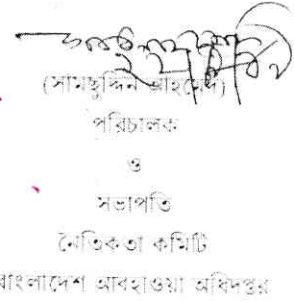 (সামছুদ্দিন আহমেদ)
পরিচালক
ও
সভাপতি
নৈতিকতা কমিটি
বাংলাদেশ আবহাওয়া অধিদপ্তর